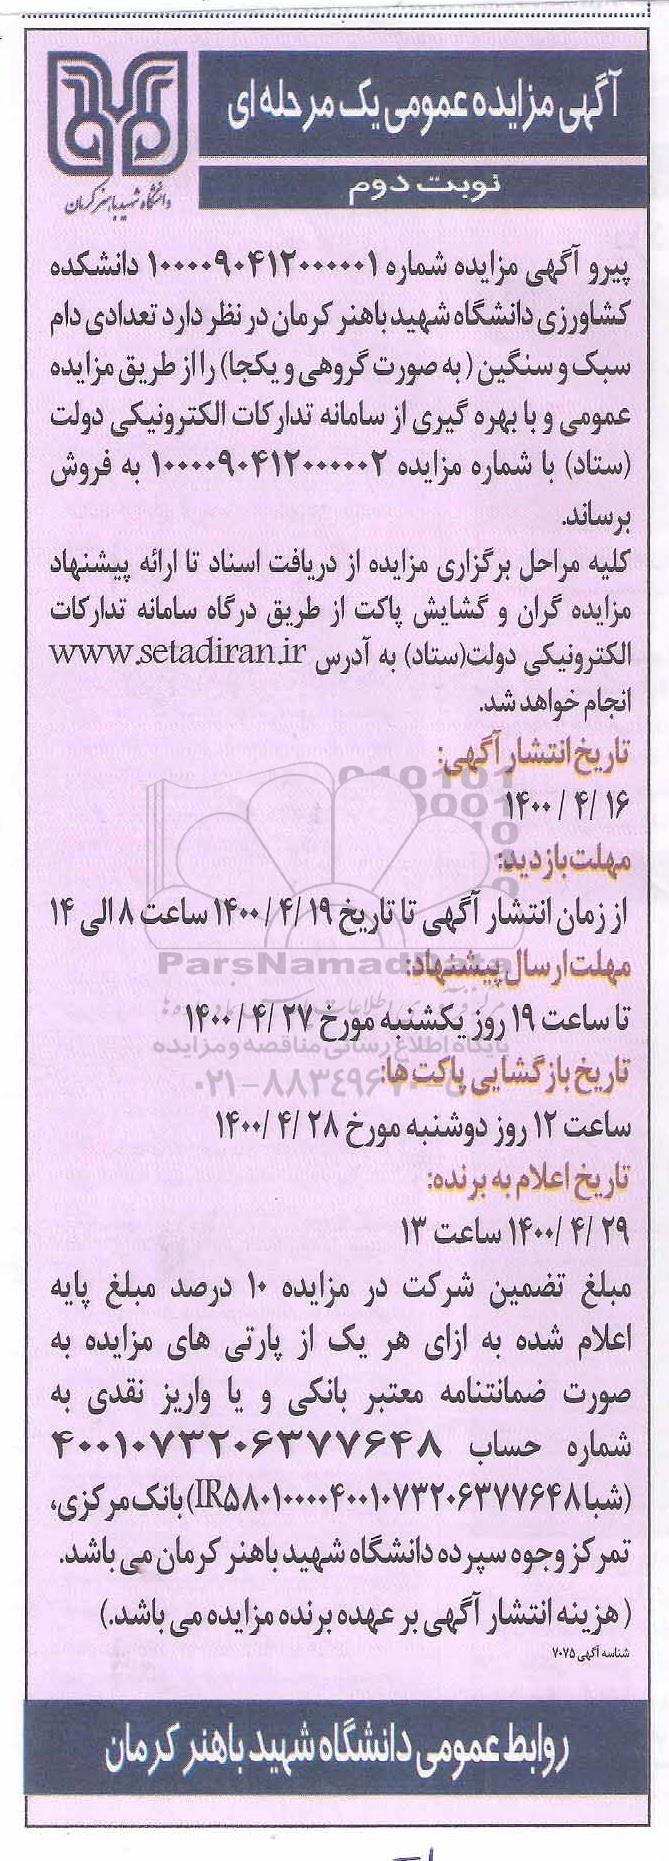 آگهی مزایده عمومی یک مرحله ای
نوبت دوم
دانشگاه شهید باهنر کرمان
پیرو آگهی مزایده شماره ۱۰۰۰۰۹۰۴۱۲۰۰۰۰۰۱ دانشکده
کشاورزی دانشگاه شهید باهنر کرمان در نظر دارد تعدادی دام
سبک و سنگین ( به صورت گروهی و یکجا) را از طریق مزایده
عمومی و با بهره گیری از سامانه تدارکات الکترونیکی دولت
(ستاد) با شماره مزایده ۱۰۰۰۰۹۰۴۱۲۰۰۰۰۰۲ به فروش
برساند.
کلیه مراحل برگزاری مزایده از دریافت اسناد تا ارائه پیشنهاد
مزایده گران و گشایش پاکت از طریق درگاه سامانه تدارکات
الکترونیکی دولت(ستاد) به آدرس www.setadiran.ir
انجام خواهد شد.
تاریخ انتشار آگهی:
۱۴۰۰ / ۴/ ۱۶
مهلت بازدید:
از زمان انتشار آگهی تا تاریخ ۱۹ /۴ / ۱۴۰۰ ساعت ۸ الی ۱۴
ParsNamadData
مهلت ارسال پیشنهاد:
تا ساعت ۱۹ روز یکشنبه مورخ ۲۷ /۴/ ۱۴۰۰
پایگاه اطلاع رسانی مناقصه و مزایده
تاریخ بازگشایی پاکت ها:
۰۲۱-۸۸۳۴۹۶۷۰
ساعت ۱۲ روز دوشنبه مورخ ۲۸ /۴ /۱۴۰۰
تاریخ اعلام به برنده:
۲۹ /۴ /۱۴۰۰ ساعت ۱۳
مبلغ تضمین شرکت در مزایده ۱۰ درصد مبلغ پایه
اعلام شده به ازای هر یک از پارتی های مزایده به
صورت ضمانتنامه معتبر بانکی و یا واریز نقدی به
شماره حساب ۴۰۰۱۰۷۳۲۰۶۳۷۷۶۴۸
(شبا IR۵۸۰۱۰۰۰۰۴۰۰۱۰۷۳۲۰۶۳۷۷۶۴۸) بانک مرکزی،
تمرکز وجوه سپرده دانشگاه شهید باهنر کرمان می باشد.
( هزینه انتشار آگهی بر عهده برنده مزایده می باشد.)
شناسه آگهی ۷۰۷۵
روابط عمومی دانشگاه شهید باهنر کرمان